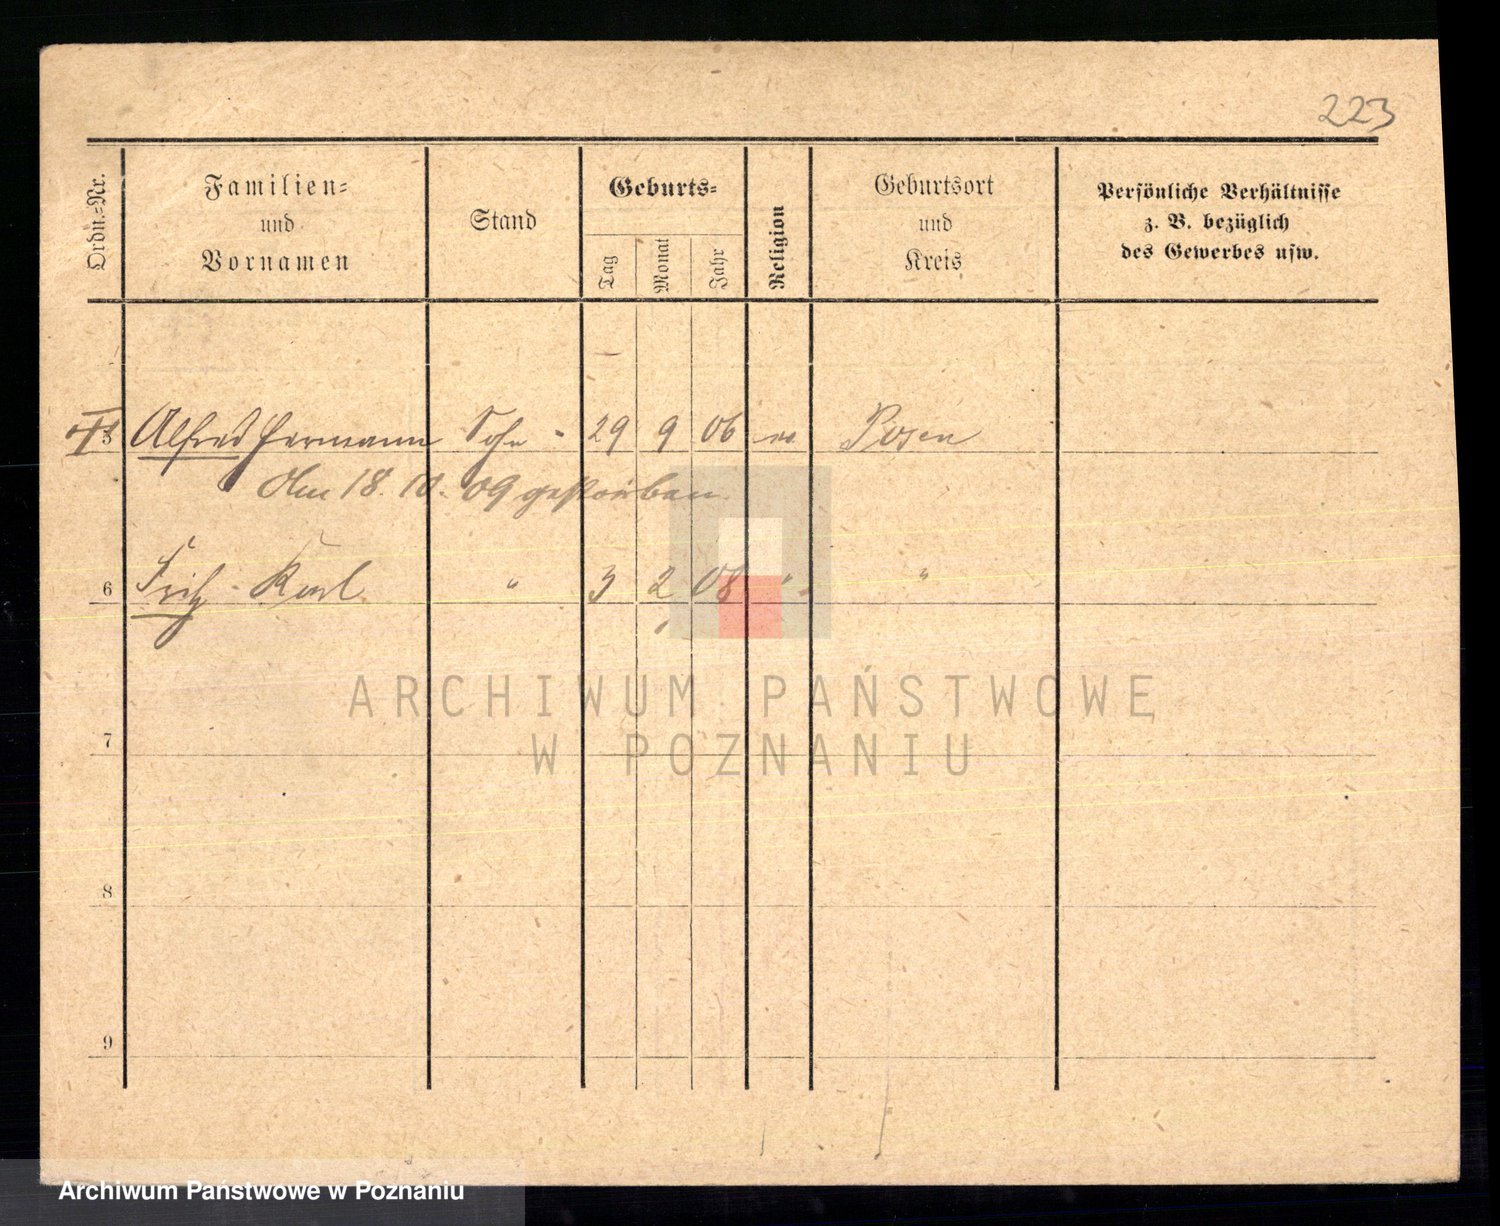 223
Ordn.-Nr.
Familien-
und
Vornamen
Stand
Geburts-
Tag
Monat
Jahr
Religion
Geburtsort
und
Kreis
Persönliche Verhältnisse
z. B. bezüglich
des Gewerbes usw.
5 Alfred Hermann Sohn - 29 9 06 Posen
Am 18. 10. 09 gestorben.
6 Fritz - Karl " 3 2 08 " "
ARCHIWUM PAŃSTWOWE
W POZNANIU
7
8
9
Archiwum Państwowe w Poznaniu